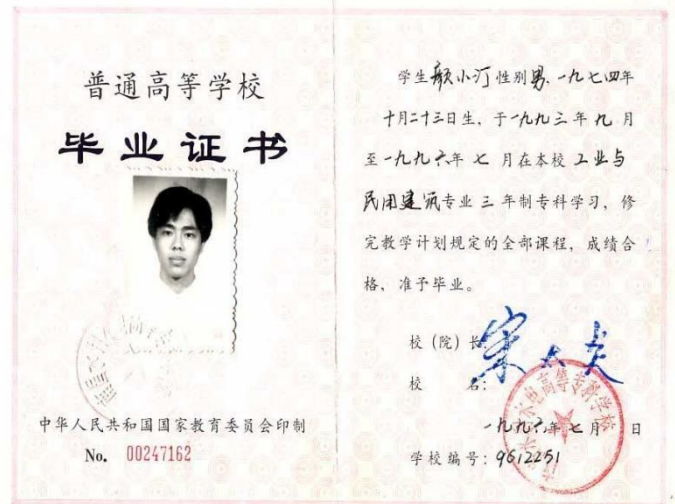 普通高等学校
毕业证书
中华人民共和国国家教育委员会印制
No. 00247162
学生颜小汀性别男、一九七四年
十月二十三日生、于一九九三年九月
至一九九六年七月在本校工业与
民用建筑专业三年制专科学习，修
完教学计划规定的全部课程，成绩合
格，准予毕业。
校（院）长：宋大夫
校 名：
水电高等专科学校
一九九六年七月 日
学校编号：9612251